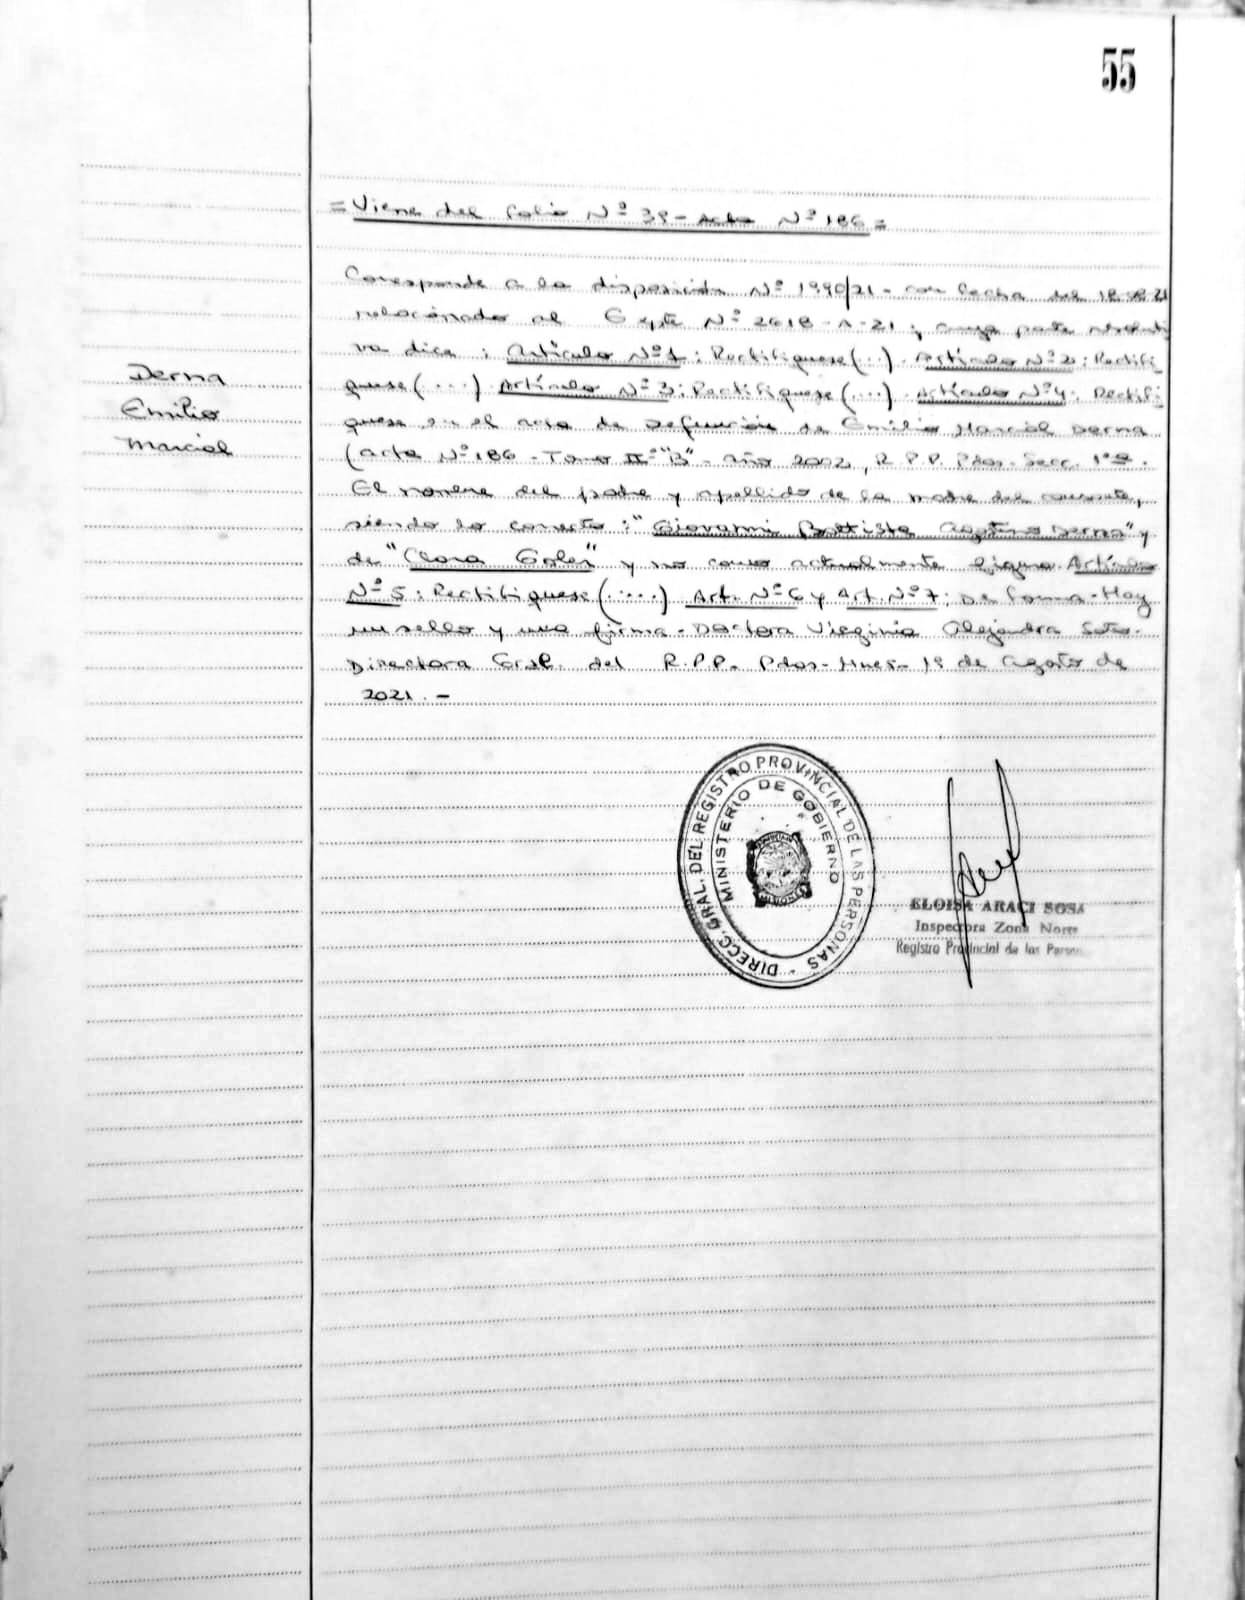 55
= Viene del Folio Nº 39 - Acta Nº 186 =
Corresponde a la disposición Nº 1990/21 - con fecha del 18-08-21
relacionado al Expte Nº 2618-A-21; cuya parte resoluti
va dice: Artículo Nº 1: Rectifiquese (...). Artículo Nº 2: Rectifi
quese (....) Artículo Nº 3: Rectifiquese (....). Artículo Nº 4: Rectifi-
quese en el acta de Defunción de Emilio Marcial Derna
(acta Nº 186 - Tomo IIº "B" - Año 2002, R.P.P. Pdas. Secc. 1ª.
El nombre del padre y apellido de la madre del causante,
siendo lo correcto: "Giovanni Battista Derna" y
de "Clara" y no como actualmente figura. Artículo
Nº 5: Rectifiquese (.....) Art. Nº 6 y Art. Nº 7: De forma - Hay
un sello y una firma - Doctora Virginia Alejandra Soto.
Directora Gral. del R.P.P. Pdas - Mnes - 19 de Agosto de
2021. -
Derna
Emilio
Marcial
DIRECC. GRAL. DEL REGISTRO PROVINCIAL DE LAS PERSONAS
MINISTERIO DE GOBIERNO
ELOISA ARACI SOSA
Inspectora Zona Norte
Registro Provincial de las Person